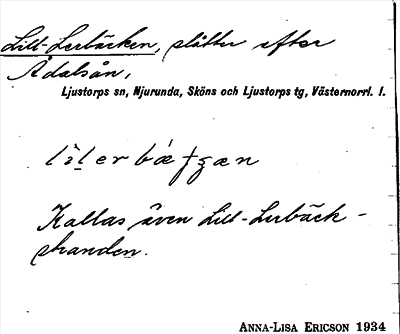 Lill-Lerbäcken, slåtter efter
Ådalsån,
Ljustorps sn, Njurunda, Sköns och Ljustorps tg, Västernorrl. l.
Kallas även Lill-Lerbäck-
stranden.
ANNA-LISA ERICSON 1934